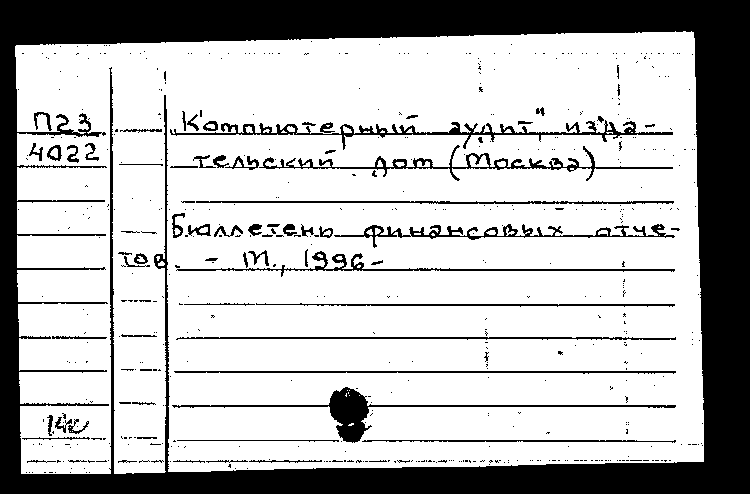 П23
4022
„Компьютерный аудит", изда-
тельский дом (Москва)
Бюллетень финансовых отче-
тов. - М., 1996-